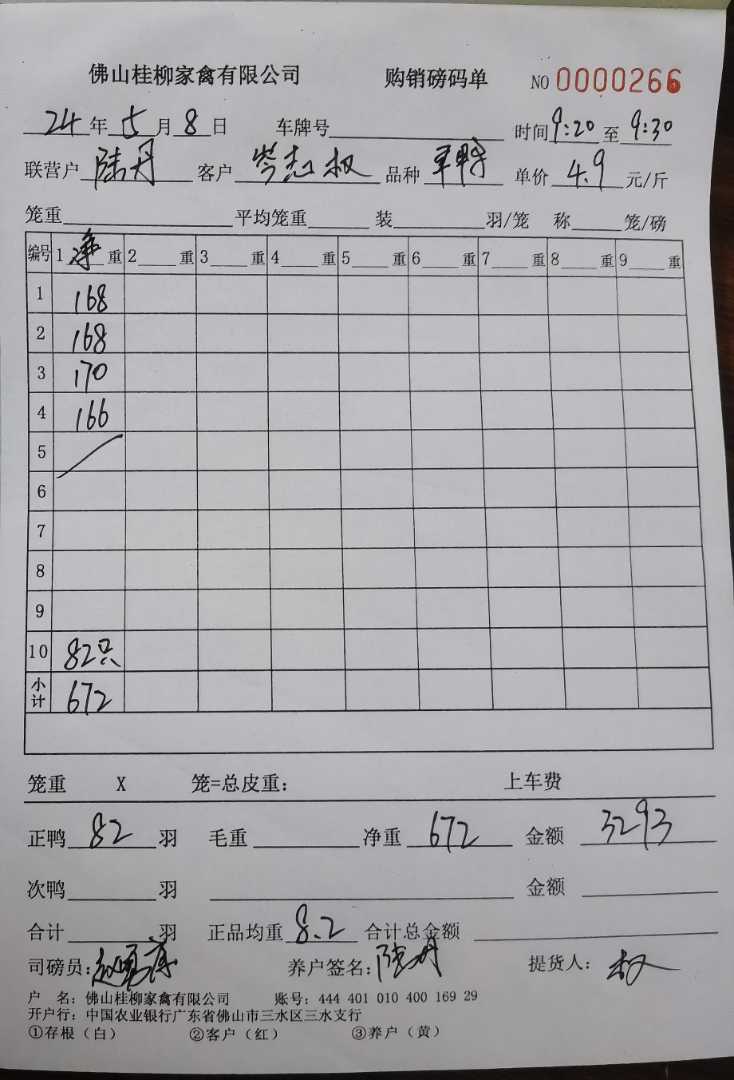 佛山桂柳家禽有限公司 购销磅码单 NO 0000266
24年5月8日 车牌号 时间9:20至9:30
联营户 陆丹 客户 岑志权 品种 单价 4.9 元/斤
笼重 平均笼重 装 羽/笼 称 笼/磅
编号 1 净 重 2 重 3 重 4 重 5 重 6 重 7 重 8 重 9 重
1 168
2 168
3 170
4 166
5
6
7
8
9
10 82只
小计 672
笼重 X 笼=总皮重: 上车费
正鸭 82 羽 毛重 净重 672 金额 3293
次鸭 羽 金额
合计 羽 正品均重 8.2 合计总金额
司磅员: 养户签名: 陆丹 提货人: 权
户 名: 佛山桂柳家禽有限公司 账号: 444 401 010 400 169 29
开户行: 中国农业银行广东省佛山市三水区三水支行
①存根(白) ②客户(红) ③养户(黄)